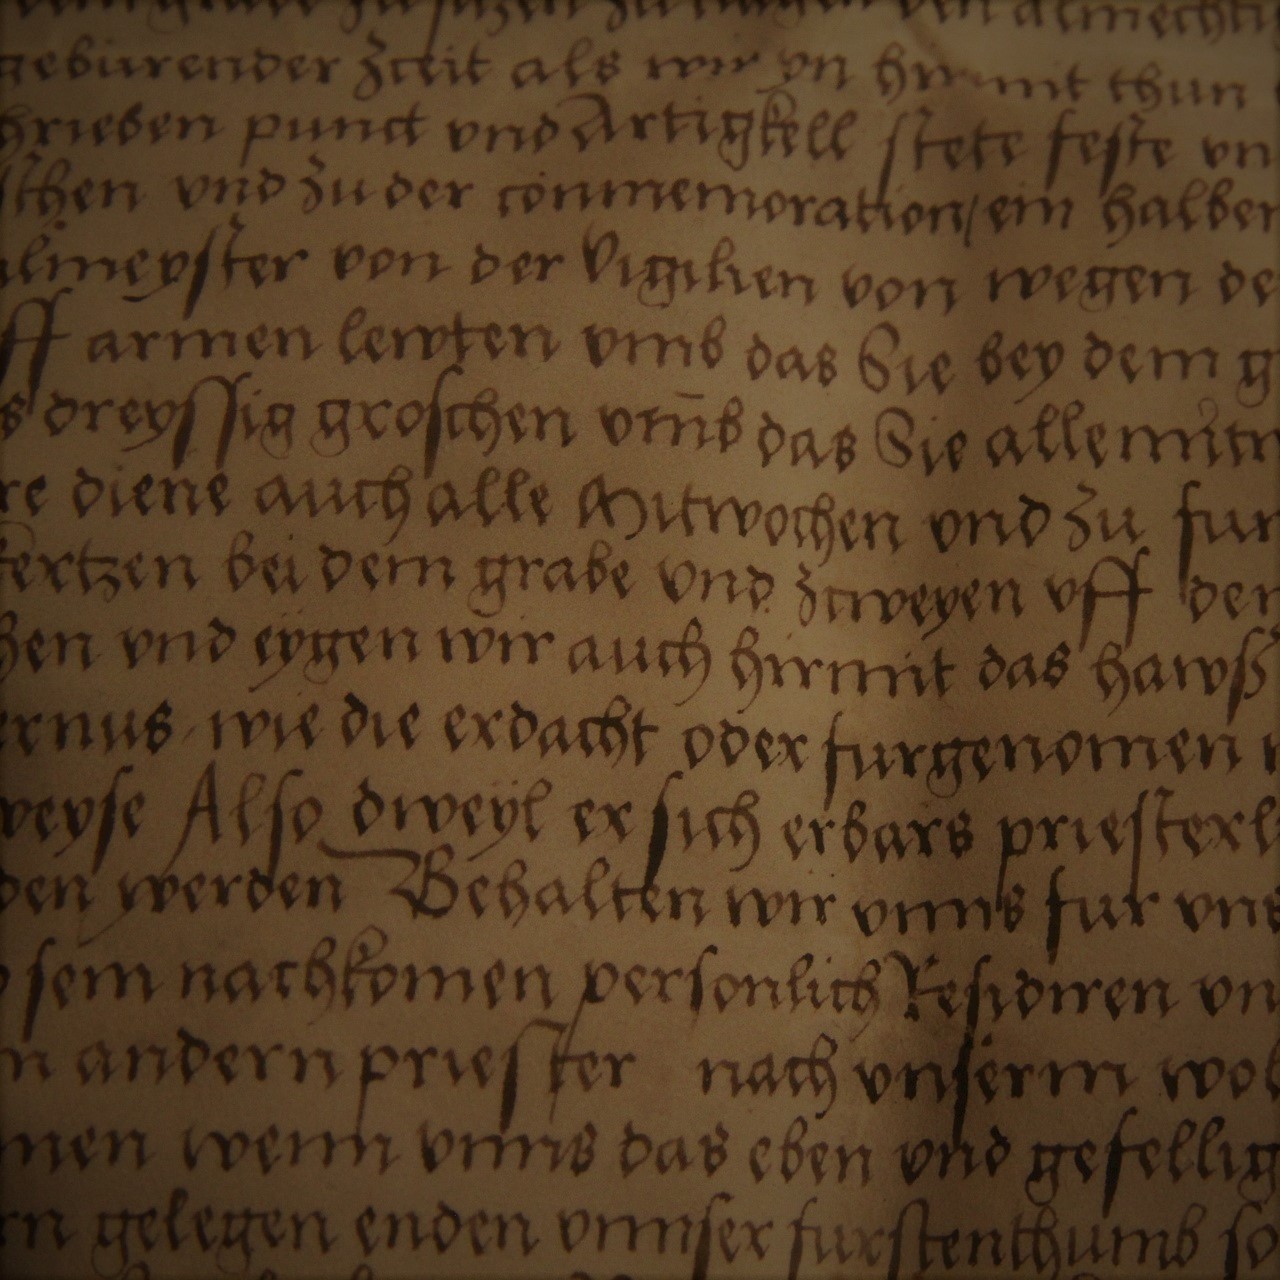 zu setzen zu den almechti
geburender Zceit als wir yn hirmit thun
hrieben punct vnd Artigkell stete feste vn
schen vnd Zu der conmemoration / ein halben
almeyster von der Vigilien von wegen de
ff armen lewten vmb das Sie bey dem g
s dreyssig groschen vmb das Sie alle mit
re diene auch alle Mitwochen vnd Zu fur
kertzen bei dem grabe vnd Zcweyen vff den
hen vnd eygen wir auch hirmit das hawß
ernus wie die erdacht oder furgenomen
weyse Also dweyl er sich erbars priesterl
den werden Behalten wir vnns fur vns
sein nachkomen personlich Residiren vn
n andern priester nach vnserm wol
men wenn vnns das eben vnd gefellig
rn gelegen enden vnnser furstenthumb so